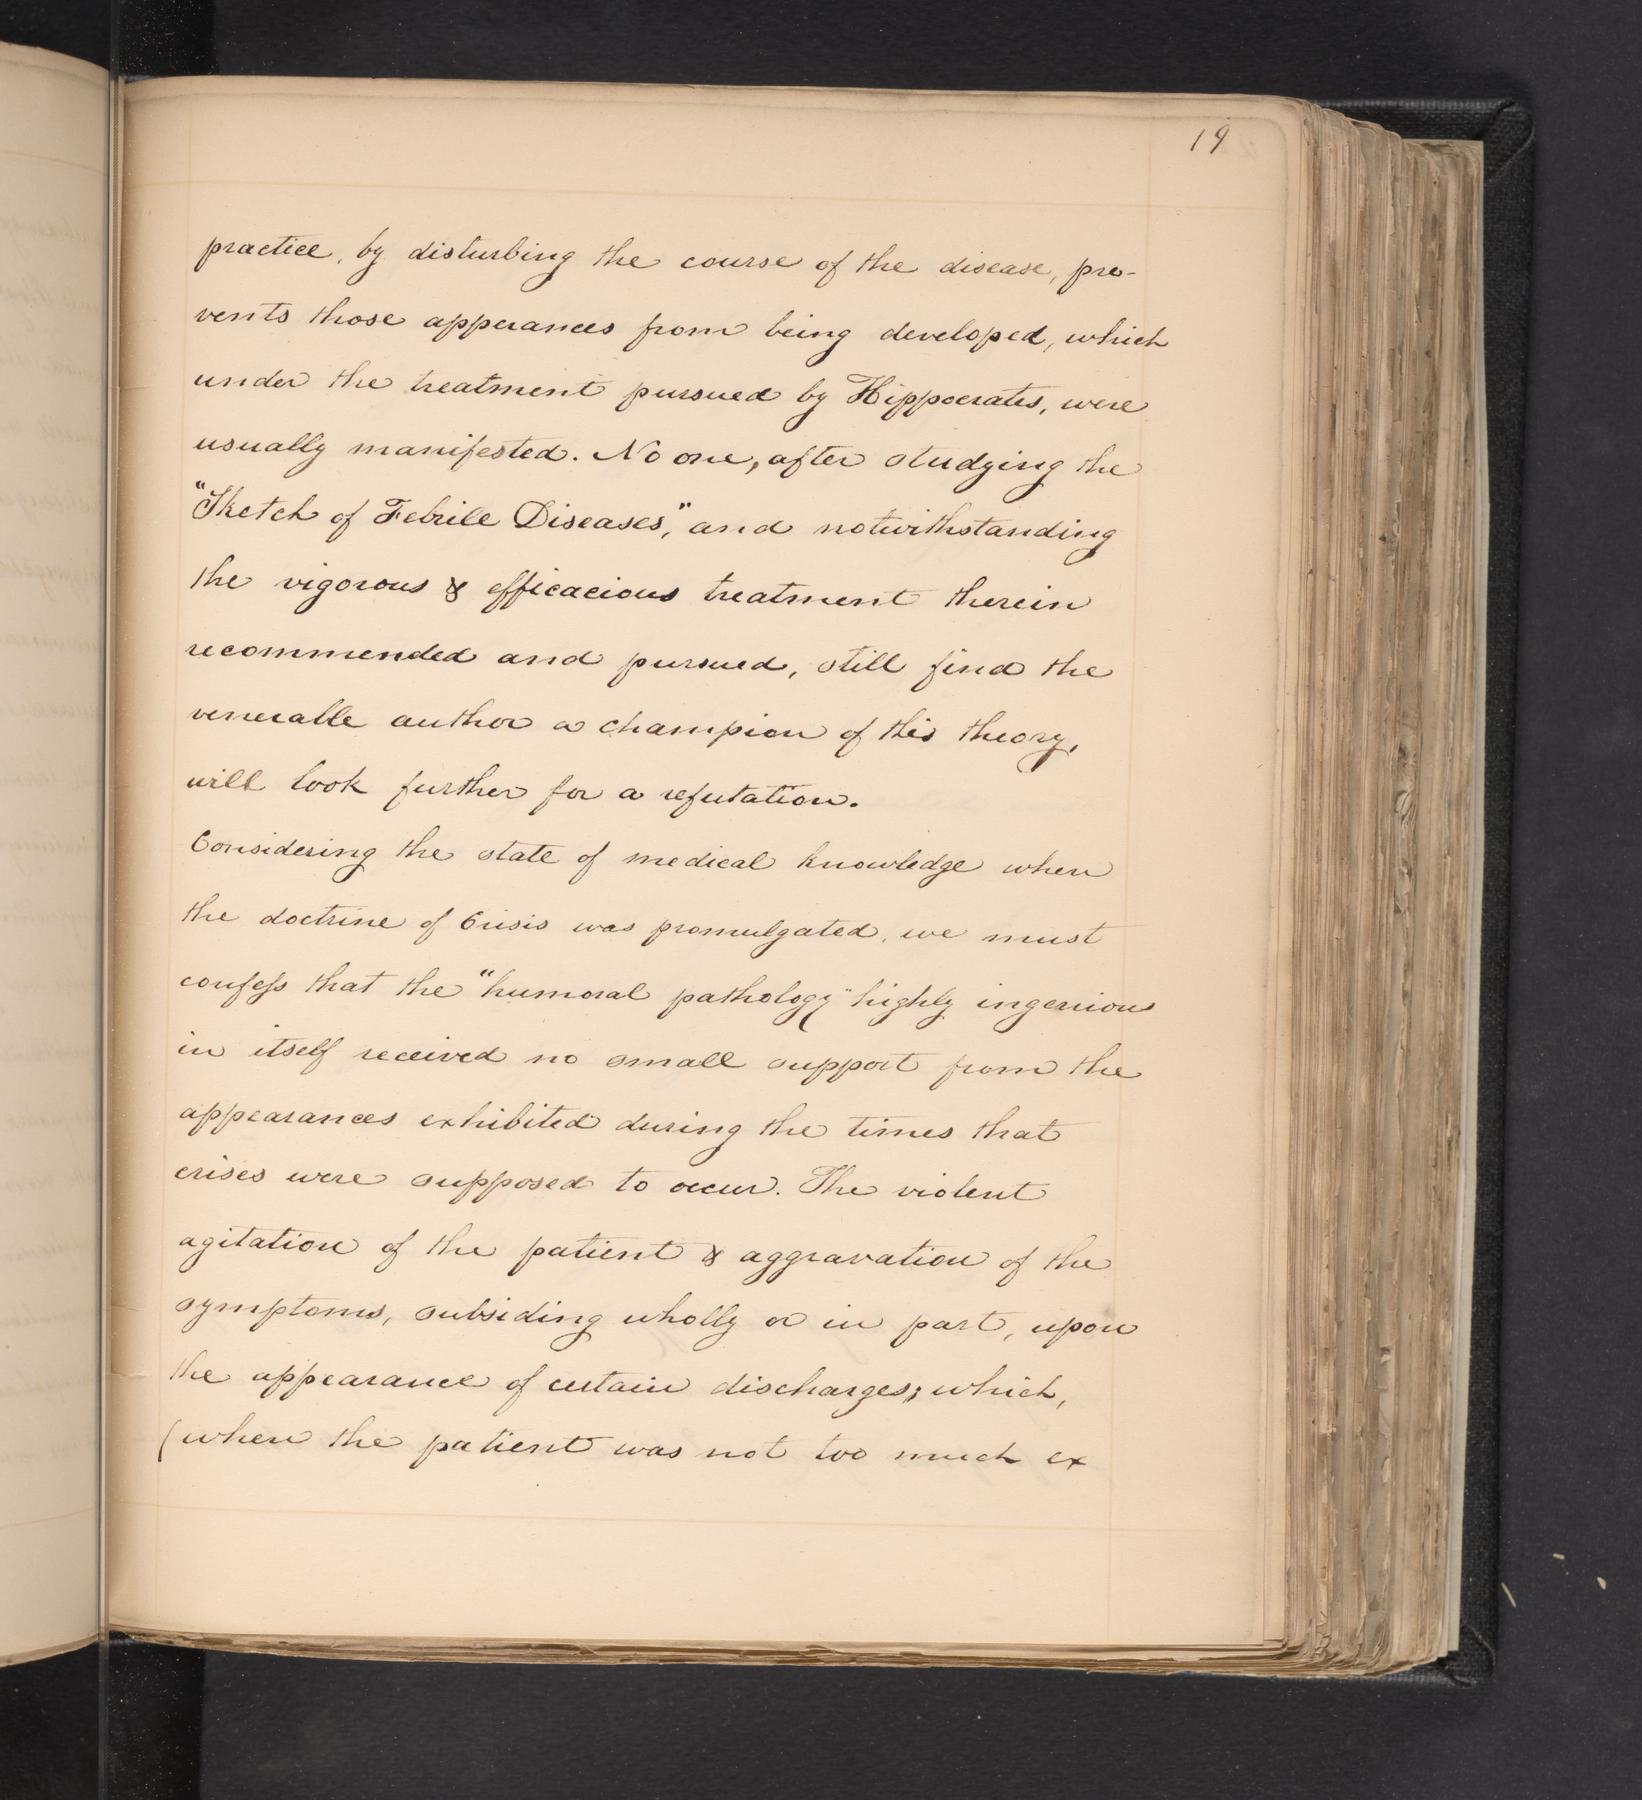 19
practice, by disturbing the course of the disease, pre-
vents those apperances from being developed, which
under the treatment pursued by Hippocrates, were
usually manifested. No one, after studying the
"Sketch of Febrile Diseases," and notwithstanding
the vigorous & efficacious treatment therein
recommended and pursued, still find the
venerable author a champion of this theory,
will look further for a refutation.
Considering the state of medical knowledge when
the doctrine of Crisis was promulgated, we must
confess that the "humoral pathology" highly ingenious
in itself received no small support from the
appearances exhibited during the times that
crises were supposed to occur. The violent
agitation of the patient & aggravation of the
symptoms, subsiding wholly or in part, upon
the appearance of certain discharges; which,
(when the patient was not too much ex